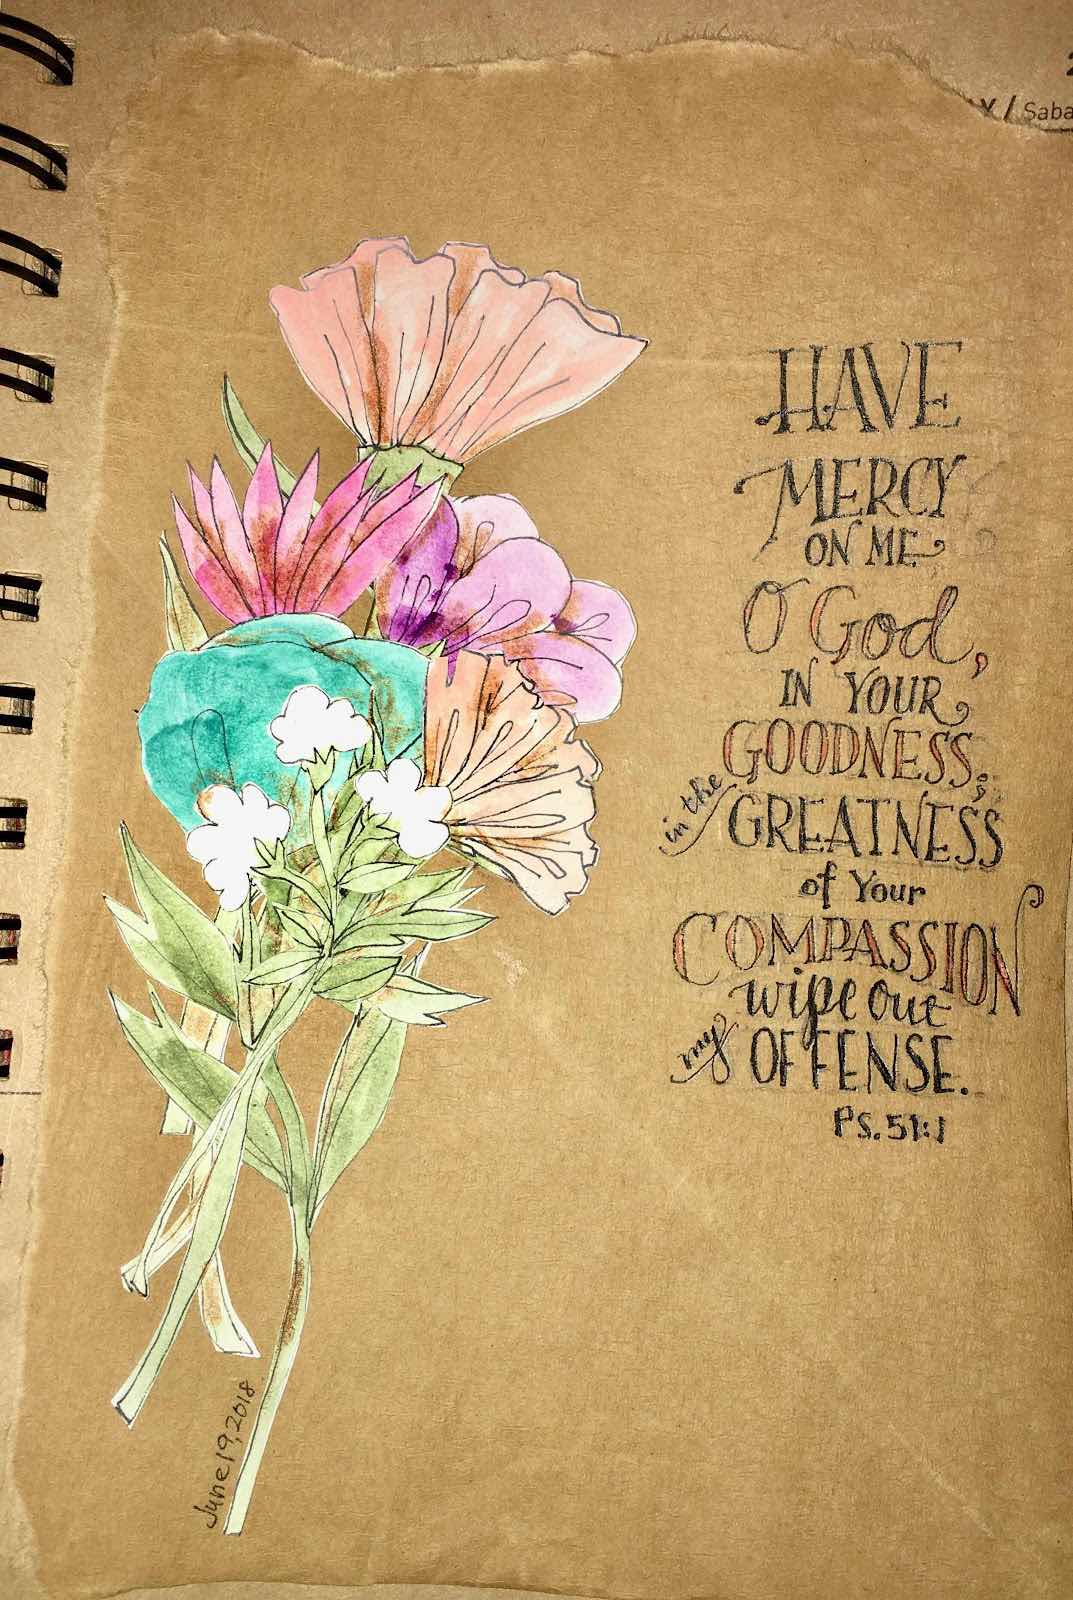 Y / Saba
HAVE
MERCY
ON ME
O God,
IN YOUR
GOODNESS;
in the
GREATNESS
of Your
COMPASSION
wipe out
my OFFENSE.
Ps. 51:1
June 19, 2018